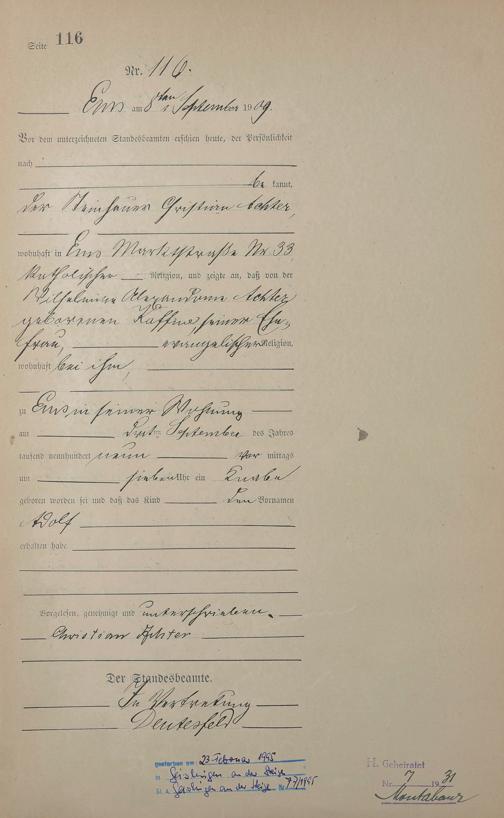 Seite 116
Nr. 116.
Ems am 8ten September 1909.
Vor dem unterzeichneten Standesbeamten erschien heute, der Persönlichkeit
nach
be kannt,
der Steinhauer Christian Achter,
wohnhaft in Ems Marktstraße Nr. 33,
katholischer Religion, und zeigte an, daß von der
Wilhelmine Achter
geborenen seiner Ehe-
frau, evangelischer Religion,
wohnhaft bei ihm,
zu Ems in seiner Wohnung
am September des Jahres
tausend neunhundert neun vor mittags
um sieben Uhr ein Knabe
geboren worden sei und daß das Kind den Vornamen
Adolf
erhalten habe
Vorgelesen, genehmigt und unterschrieben.
Christian Achter
Der Standesbeamte.
In Vertretung
gestorben am 23. Februar 1995
in Geislingen an der Steige
St. A. Geislingen an der Steige Nr. 77/1995
H. Geheiratet
Nr. 7 1931
Montabaur